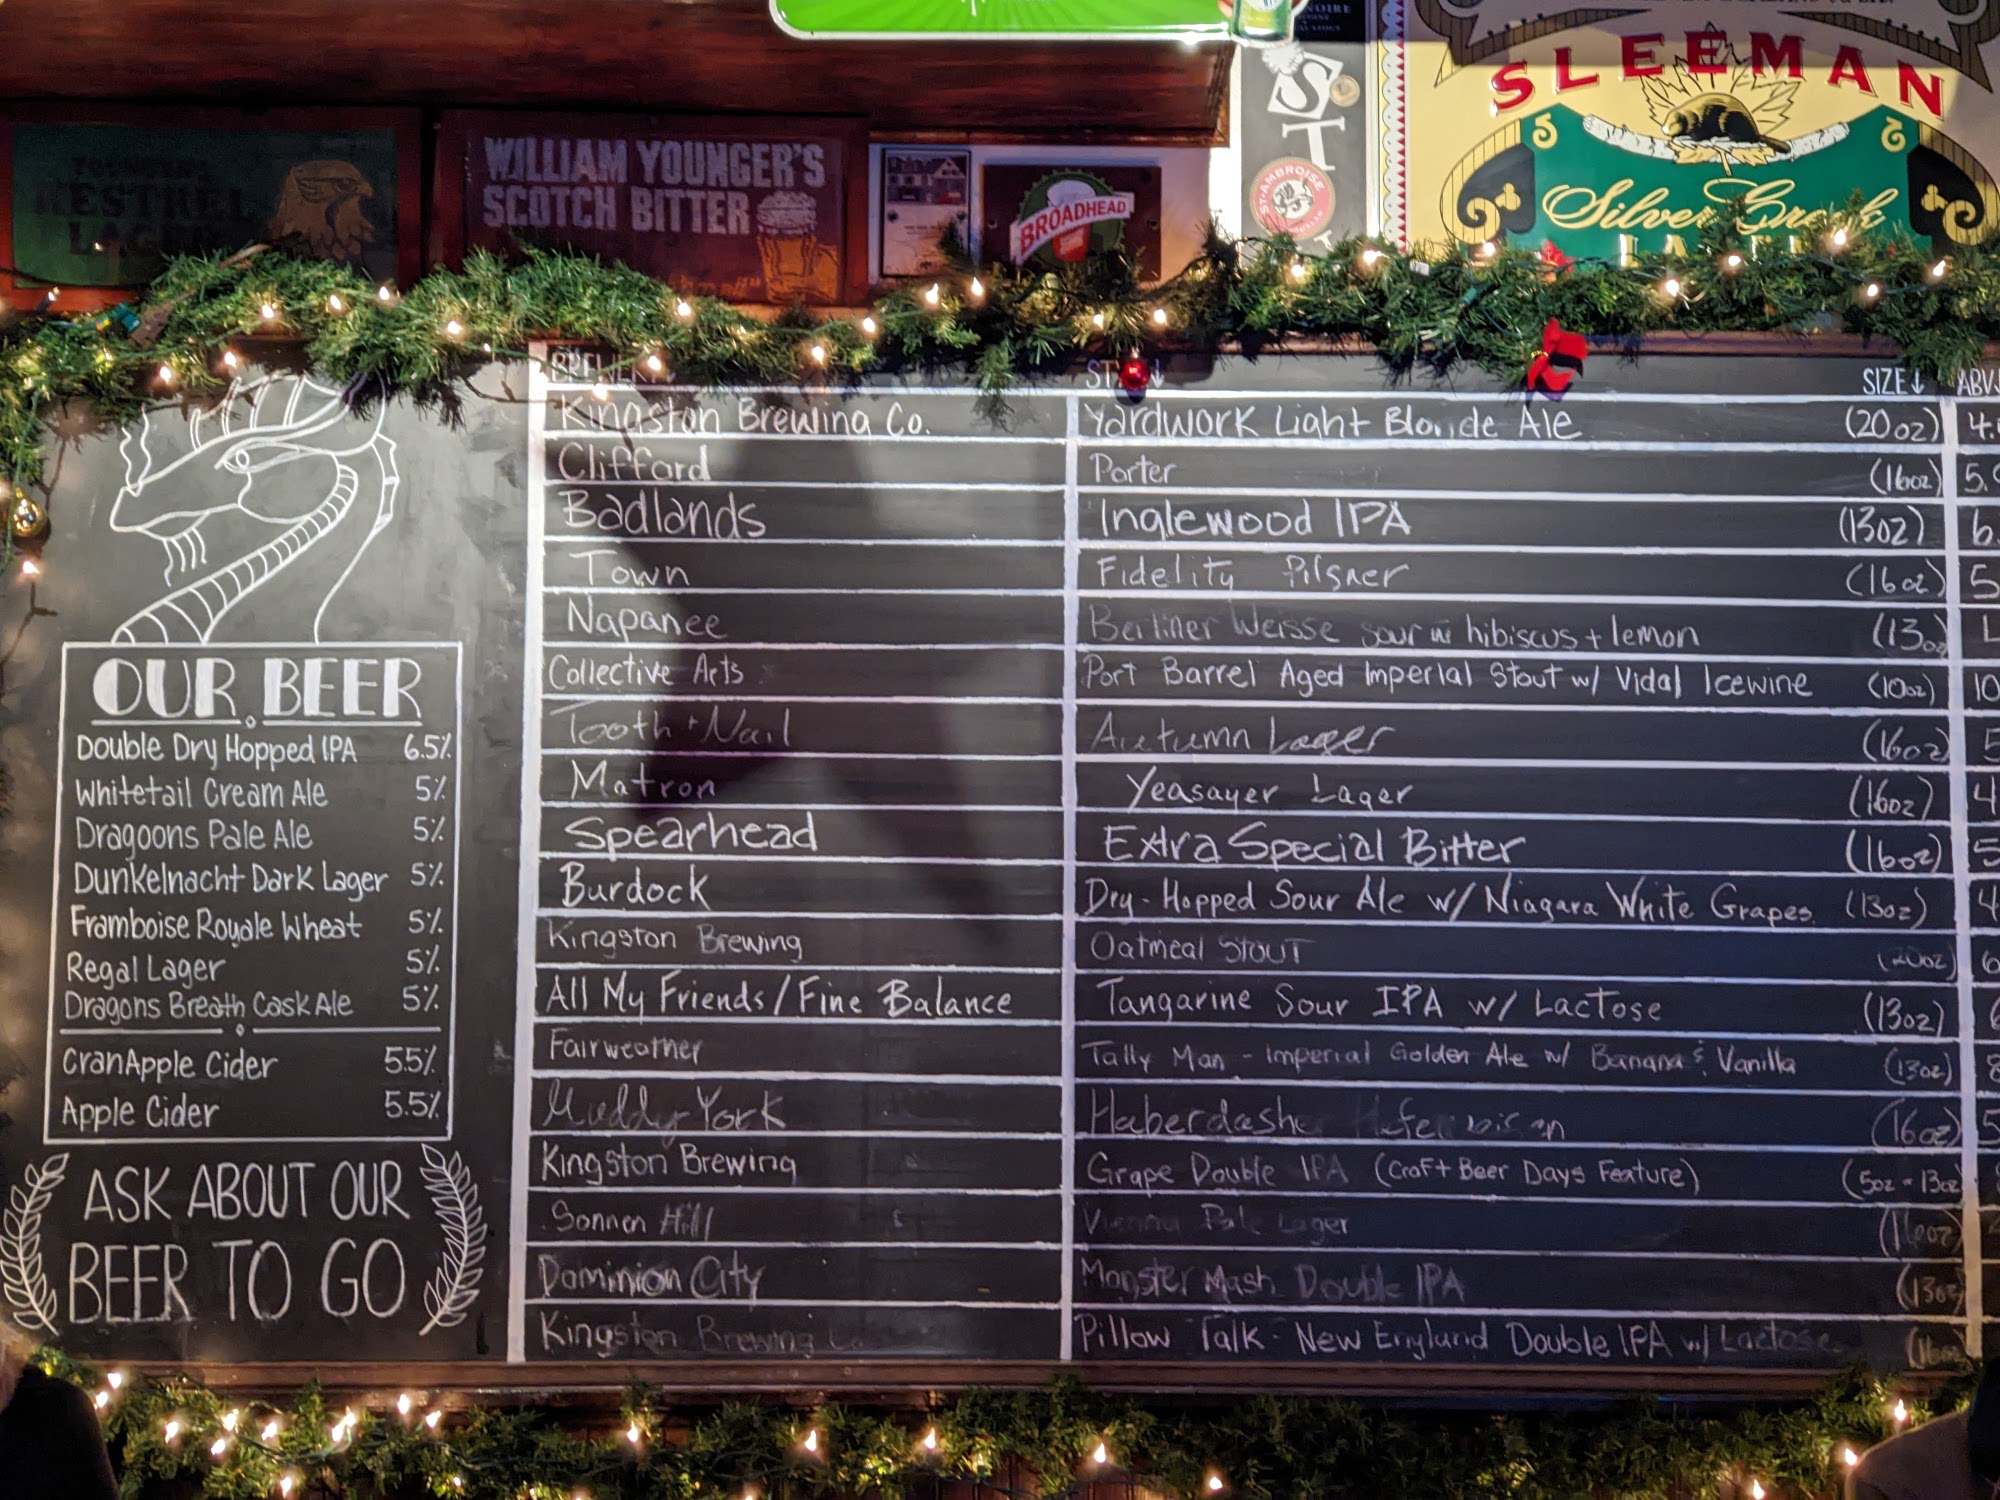 SLEEMAN
WILLIAM YOUNGER'S
SCOTCH BITTER
KESTREL
LAGER
BROADHEAD
ST-AMBROISE
Silver Creek
LAGER
OUR BEER
Double Dry Hopped IPA 6.5%
Whitetail Cream Ale 5%
Dragoons Pale Ale 5%
Dunkelnacht Dark Lager 5%
Framboise Royale Wheat 5%
Regal Lager 5%
Dragons Breath Cask Ale 5%
CranApple Cider 5.5%
Apple Cider 5.5%
ASK ABOUT OUR
BEER TO GO
SIZE↓ ABV↓
Kingston Brewing Co. Yardwork Light Blonde Ale (20oz) 4.
Clifford Porter (16oz) 5.9
Badlands Inglewood IPA (13oz) 6.
Town Fidelity Pilsner (16oz) 5
Napanee Berliner Weisse sour w/ hibiscus + lemon (13oz)
Collective Arts Port Barrel Aged Imperial Stout w/ Vidal Icewine (10oz) 10
Tooth + Nail Autumn Lager (16oz) 5
Matron Yeasayer Lager (16oz) 4
Spearhead Extra Special Bitter (16oz) 5
Burdock Dry-Hopped Sour Ale w/ Niagara White Grapes (13oz) 4
Kingston Brewing Oatmeal Stout (20oz) 6
All My Friends/Fine Balance Tangarine Sour IPA w/ Lactose (13oz) 6
Fairweather Tally Man - Imperial Golden Ale w/ Banana & Vanilla (13oz) 8
Muddy York Haberdasher Hefeweizen (16oz) 5
Kingston Brewing Grape Double IPA (Craft Beer Days Feature) (5oz - 13oz)
Sonnen Hill Vienna Pale Lager (16oz)
Dominion City Monster Mash Double IPA (13oz)
Kingston Brewing Co Pillow Talk - New England Double IPA w/ Lactose (16oz)